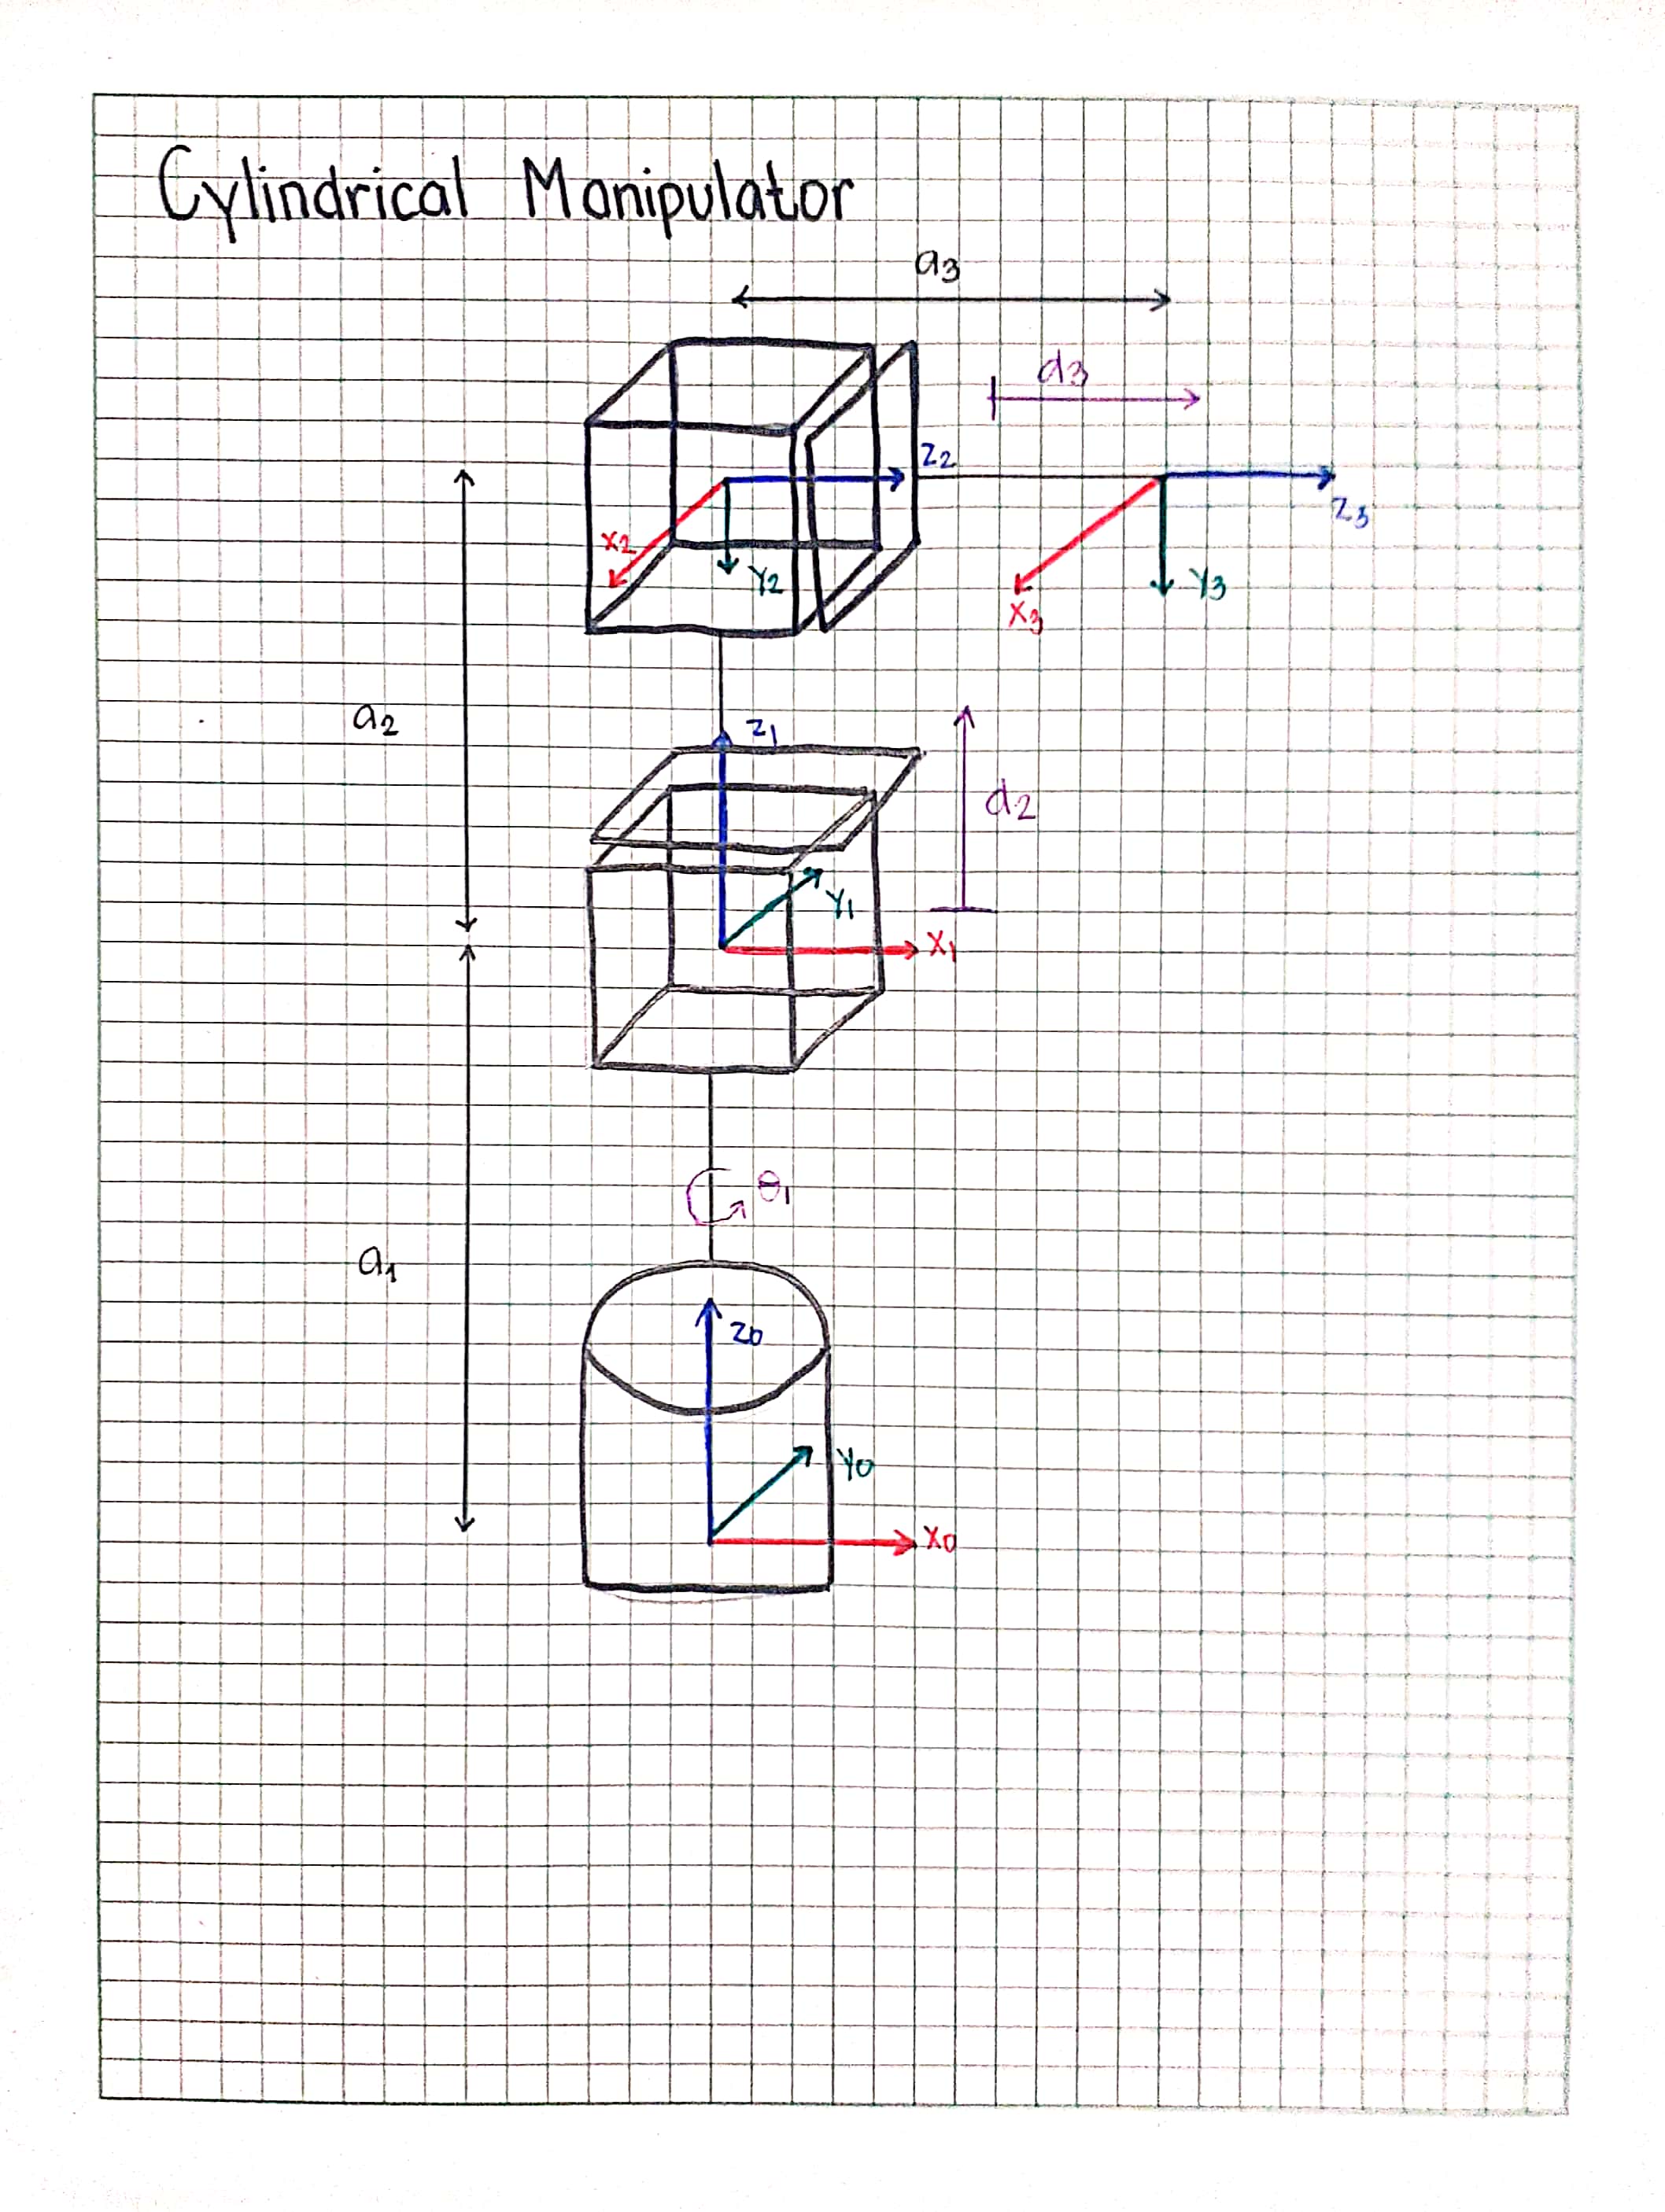 Cylindrical Manipulator
a3
d3
z2
z3
x2
y2
y3
x3
a2
z1
d2
y1
x1
θ1
a1
z0
y0
x0